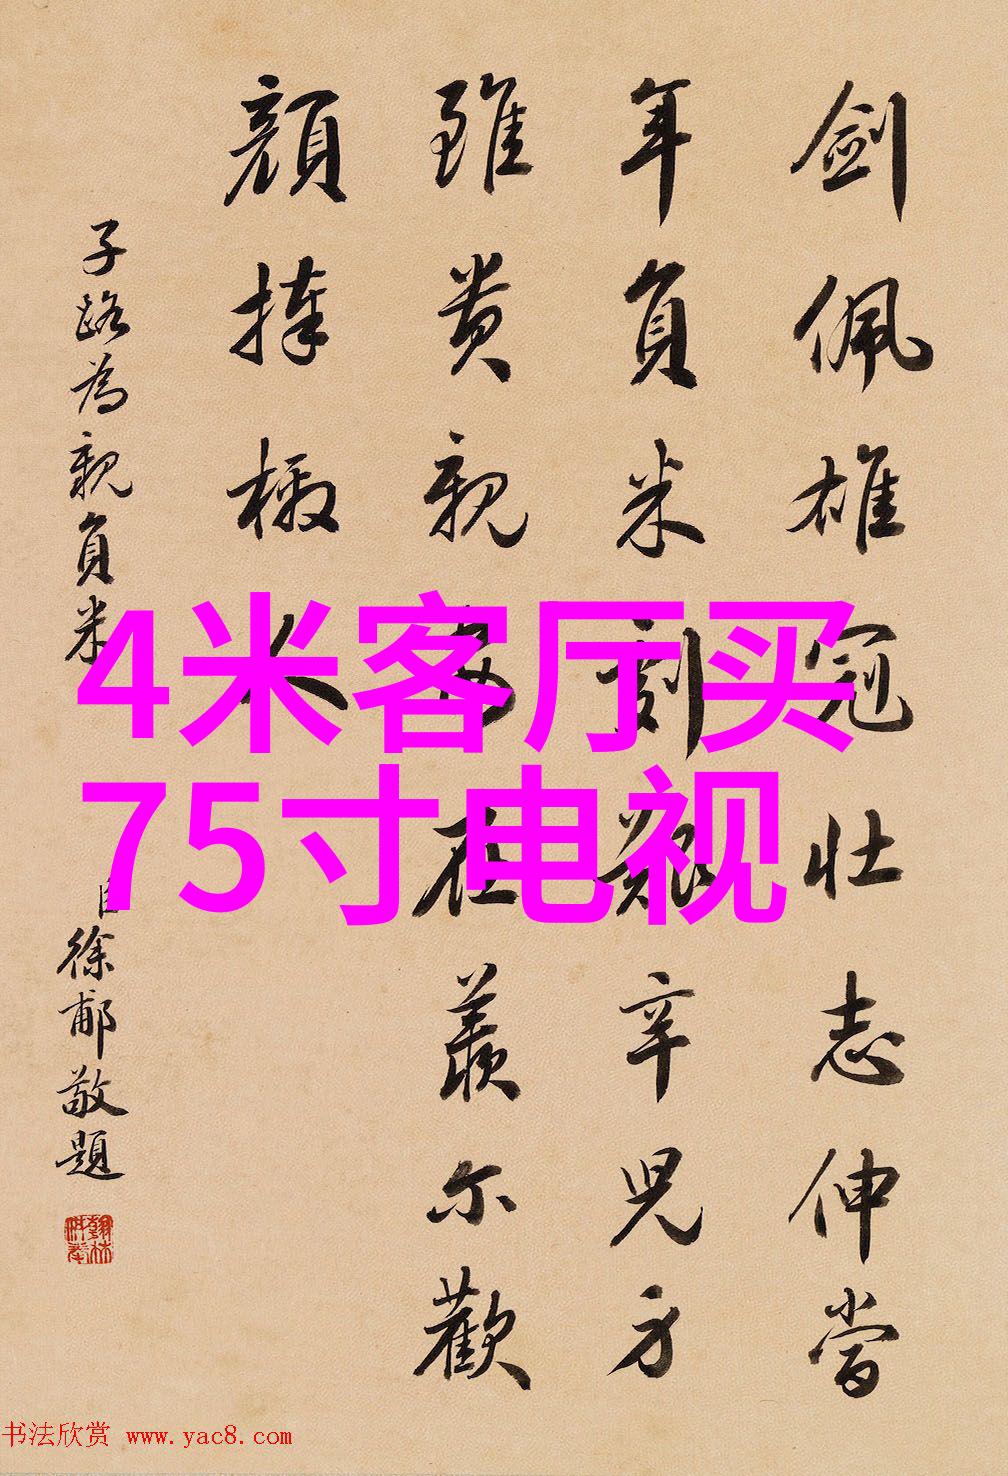 劍佩雄冠壯志伸當
年負米艱辛兒方
雖貴親在羨尔歡
顏捧檄人
子路為親負米
臣徐郙敬題
4米客厅买
75寸电视
书法欣赏 www.yac8.com